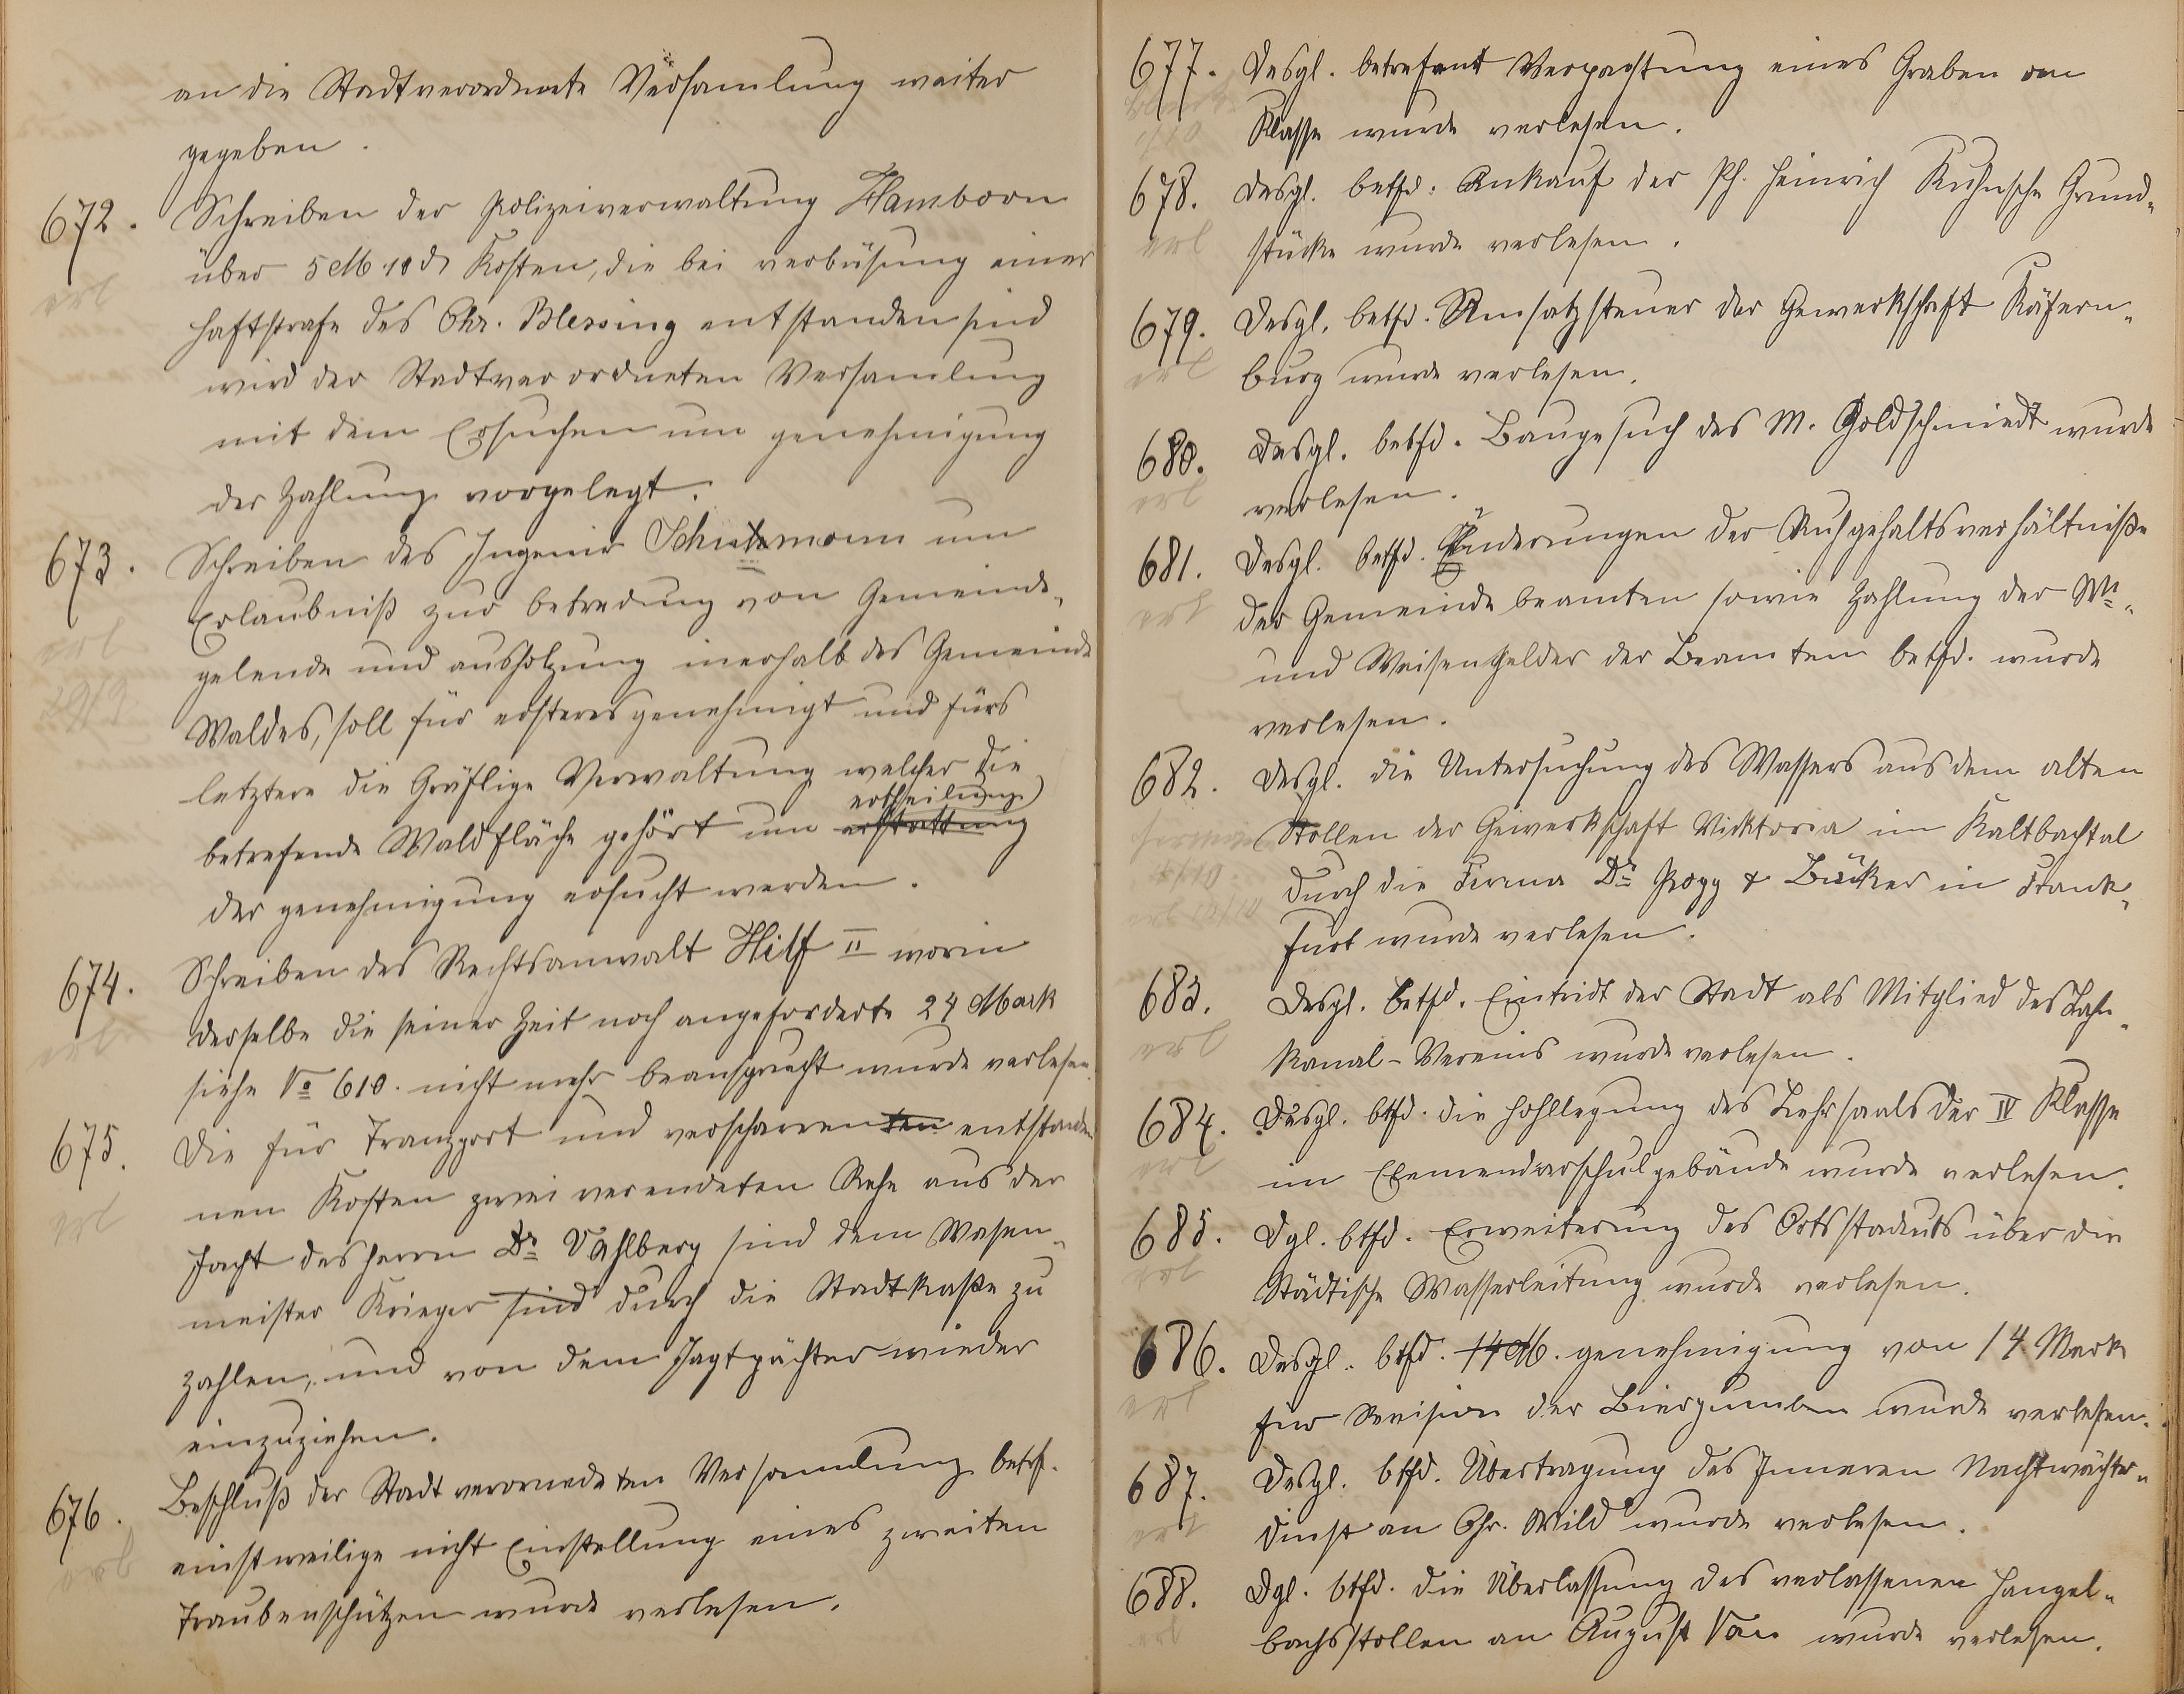 an die Stadtverordnete Versamlung weiter
gegeben.
672. Schreiben der Polizeiverwaltung Hamborn
erl über 5 M 10 d Kosten, die bei verbüsung einer
Haftstrafe des Chr. Blessing entstanden sind
wird der Stadtverordneten Versamlung
mit dem Ersuchen um genehmigung
der Zahlung vorgelegt.
673. Schreiben des Ingenir um
Erlaubniß zur betredung von Gemeinde-
erl gelende und ausholzung inerhalb des Gemeinde
29/9 Waldes, soll für ersteres genehmigt und fürs
letztere die Gräflige Verwaltung welcher die
ertheilung
betrefende Waldfläche gehört um erstattung
der genehmigung ersucht werden.
674. Schreiben des Rechtsanwalt Hilf II worin
erl derselbe die seiner Zeit noch angeforderte 24 Mark
siehe No 610. nicht mehr beansprucht wurde verlesen.
675. Die für Tranzport und verscharrenten entstande
erl nen Kosten zwei verendeten Rehe aus der
Jacht des Herrn Dr Vahlberg sind dem Wasen-
meister Krieger sind durch die Stadtkaße zu
zahlen, und von dem Jagtpächter wieder
einzuziehen.
676. Beschluß der Stadtverorneдeten Versamlung betrf.
erl einstweilige nicht Einstellung eines zweiten
Traubenschützen wurde verlesen.
677. Desgl. betrefent Verpachtung eines Graben am
1/10 Klasse wurde verlesen.
678. Desgl. betfd. Ankauf der Ph. Heinrich Kuhnsche Grund-
erl stücke wurde verlesen.
679. Desgl. betfd. Umsatzsteuer der Gewerkschaft Käfern-
erl burg wurde verlesen.
680. Desgl. betfd. Baugesuch des M. Goldschmiedt wurde
erl verlesen.
681. Desgl. betfd. Änderungen der Ruhgehaltsverhältniße
erl der Gemeindebeamten sowie Zahlung der Wi-
und Waisengelder der Beamten betfd. wurde
verlesen.
682. Desgl. die Untersuchung des Wassers aus dem alten
Stollen der Gewerkschaft Vicktoria im Kaltbachtal
durch die Firma Dr Popp & Bücker in Frank-
furt wurde verlesen.
683. Desgl. betfd. Eintridt der Stadt als Mitglied des Lahn-
erl Kanal-Vereins wurde verlesen.
684. Desgl. btfd. die Hohllegung des Lehrsaals der IV Klasse
erl im Elemendarschulgebäude wurde verlesen.
685. Dgl. btfd. Erweiterung des Ortsstaduts über die
erl Städtische Wasserleitung wurde verlesen.
686. Desgl. btfd. 14 M. genehmigung von 14 Mark
erl für Revision der Bierpumben wurde verlesen.
687. Desgl. btfd. Übertragung des Inneren Nachtwächter-
erl dinst an Chr. Wild wurde verlesen.
688. Dgl. btfd. die Überlassung des verlassenen Hangel-
erl bachsstollen an August wurde verlesen.